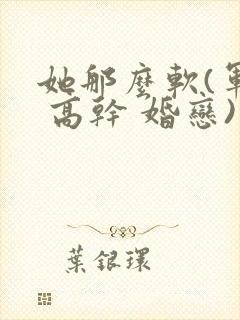 她那麼軟(軍
高幹 婚戀)
葉銀環